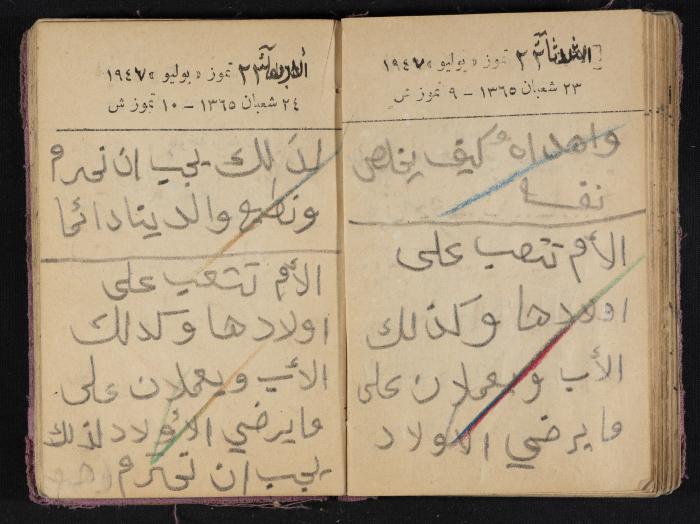 الثلاثاء ٢٢ تموز «يوليو» ١٩٤٧
٢٣ شعبان ١٣٦٥ - ٩ تموز ش
واهداه كيف يخلص
نفسه
الأم تتعب على
اولادها وكذلك
الأب ويعملان على
ما يرضي الاولاد
الأربعاء ٢٣ تموز «يوليو» ١٩٤٧
٢٤ شعبان ١٣٦٥ - ١٠ تموز ش
لذلك يجب ان نحترم
ونطيع والدينا دائما
الأم تتعب على
اولادها وكذلك
الأب ويعملان على
ما يرضي الأولاد لذلك
يجب ان نحترم